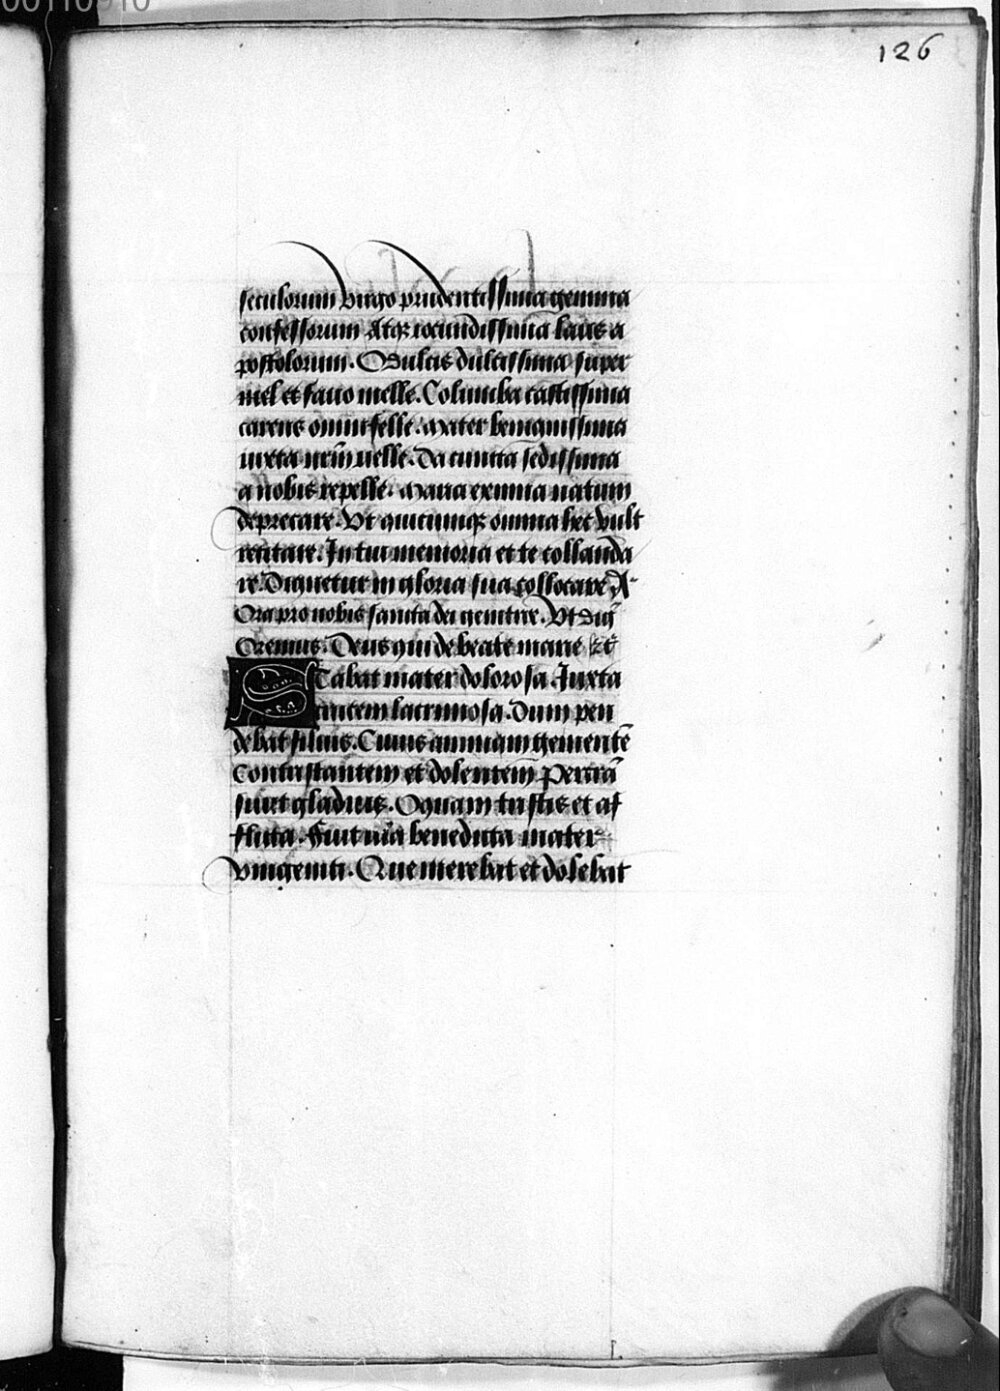 00110910
126
seculorum Virgo prudentissima gemma
confessorum Atq; iocundissima laus a
postolorum. Dulcis dulcissima super
mel et fauo melle. Columba castissima
carens omni felle. Mater benignissima
iuxta nrm̄ uelle. Da cuncta sedissima
a nobis repelle. Maria eximia natum
deprecare. Vt quicumq; omnia hec vult
recitare. In tui memoria et te collauda
re. Dignetur in gloria sua collocare
Ora pro nobis sancta dei genitrix. Vt dig̃
Oremus. Deus qui de beate marie
Stabat mater dolorosa Iuxta
lacrimosa. Dum pen
debat filius. Cuius animam gementē
Contristantem et dolentem Pertrā
siuit gladius. O quam tristis et af
flicta. Fuit illa benedicta mater
vnigeniti. Que merebat et dolebat